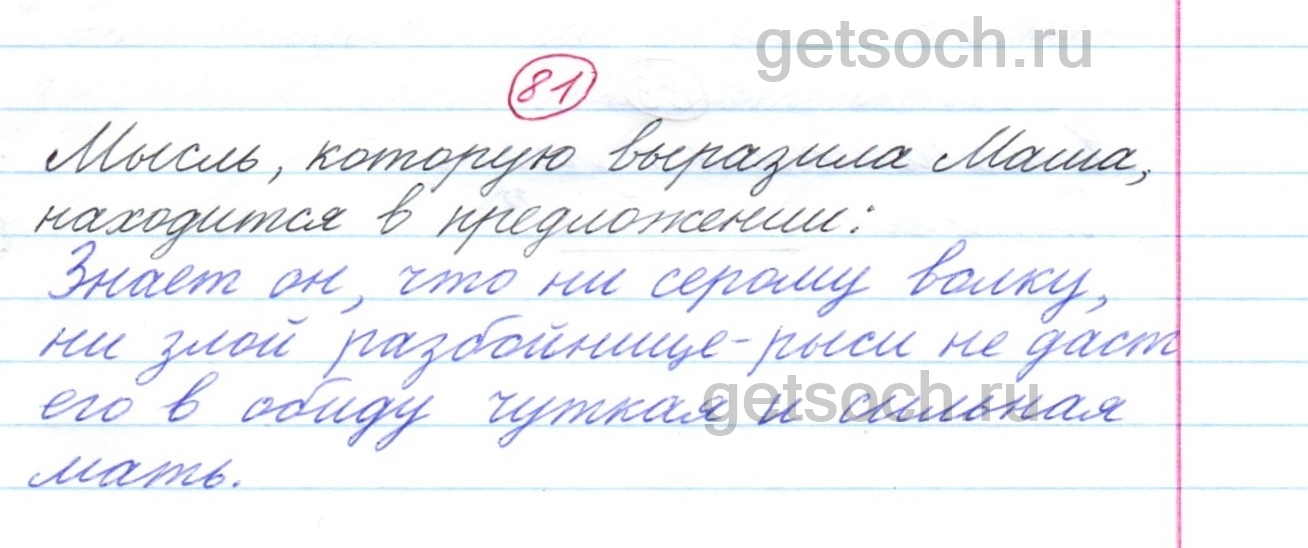 getsoch.ru
81
Мысль, которую выразила Маша,
находится в предложении:
Знает он, что ни серому волку,
ни злой разбойнице-рыси не даст
его в обиду чуткая и сильная
getsoch.ru
мать.